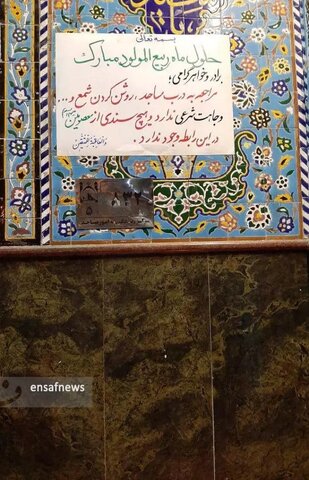 بسمه تعالی
حلول ماه ربیع المولود مبارک
برادر و خواهر گرامی ؛
مراجعه به درب مساجد ، روشن کردن شمع و ...
وجاهت شرعی ندارد و هیچ سندی از معصومین
در این رابطه وجود ندارد .
ensafnews